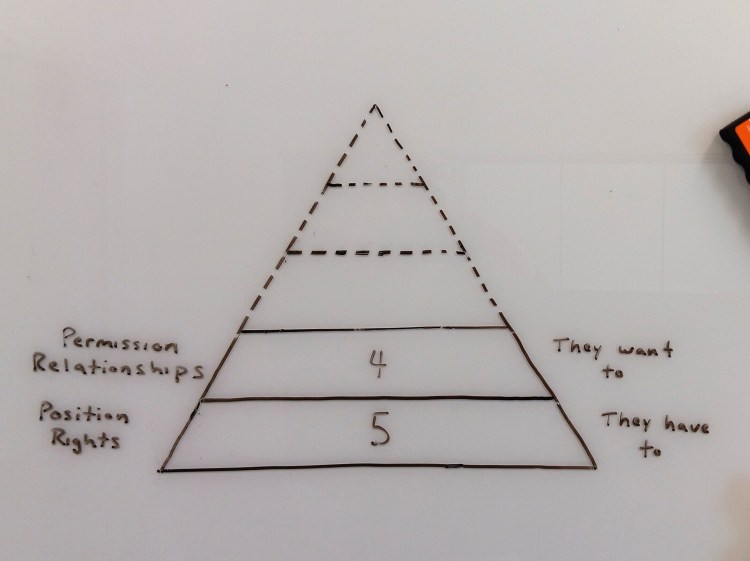 Permission
Relationships
4
They want
to
Position
Rights
5
They have
to